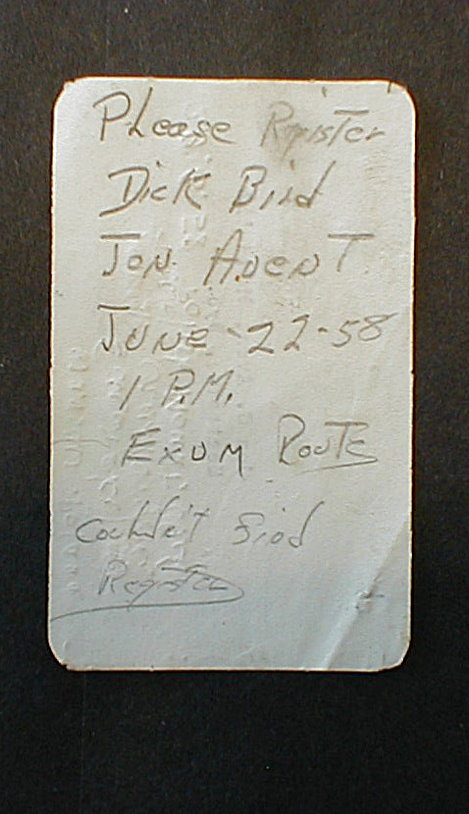 Please Register
Dick Bird
Jon Avent
June-22-58
1 P.M.
Exum Route
Couldn't find
Register